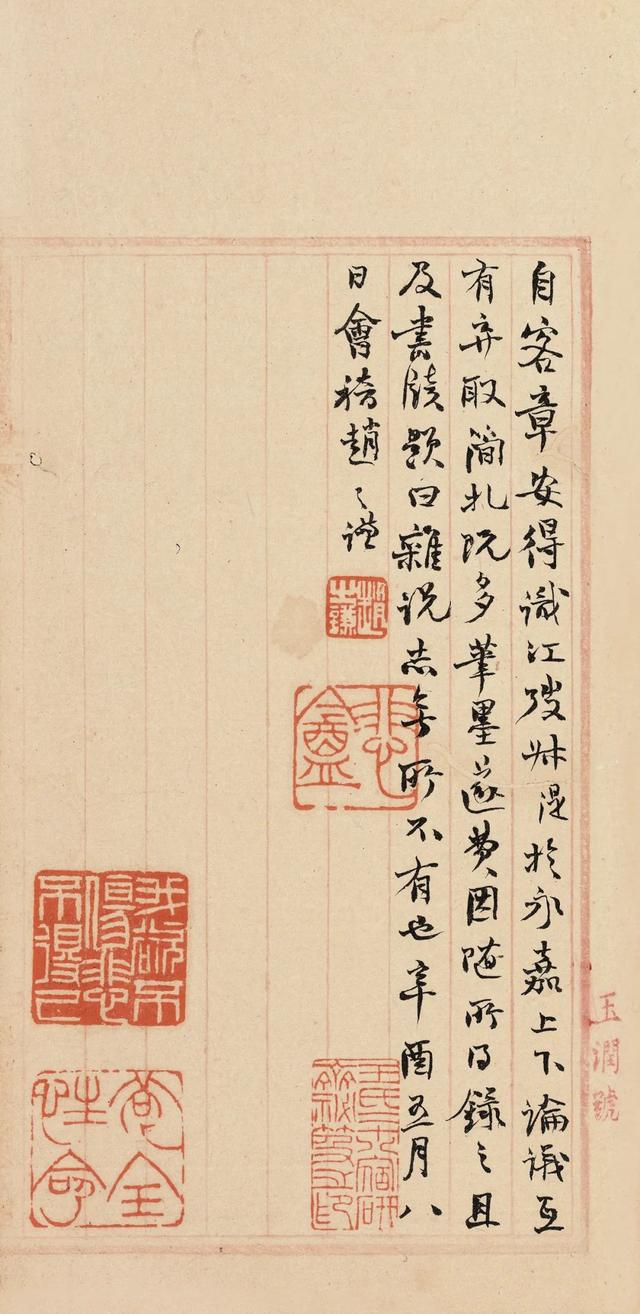 自客章安得識江弢叔湜於永嘉上下論議互
有弃取簡札既多筆墨遂費因隨所得錄之且
及書牘題曰雜說志無所不有也辛酉五月八
日會稽趙之謙
趙之謙
悲盦
王氏二十八宿研齋祕笈之印
我欲不傷悲不得已
苟全性命
玉潤號